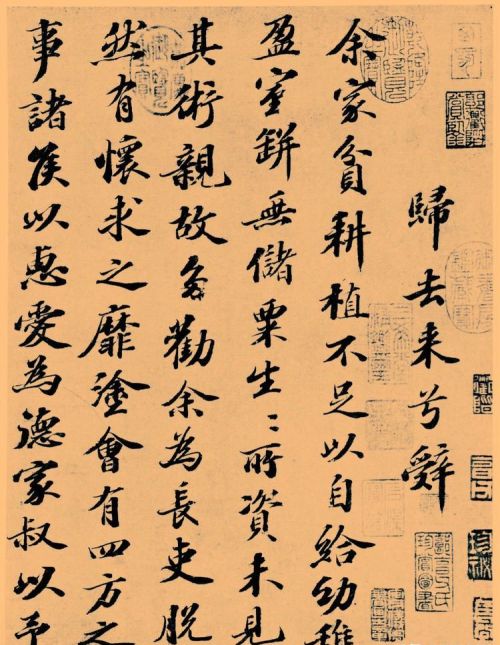 歸去来兮辭
余家貧耕植不足以自給幼稚
盈室缾無儲粟生〻所資未見
其術親故多勸余為長吏脫
然有懷求之靡塗會有四方之
事諸侯以惠愛為德家叔以予